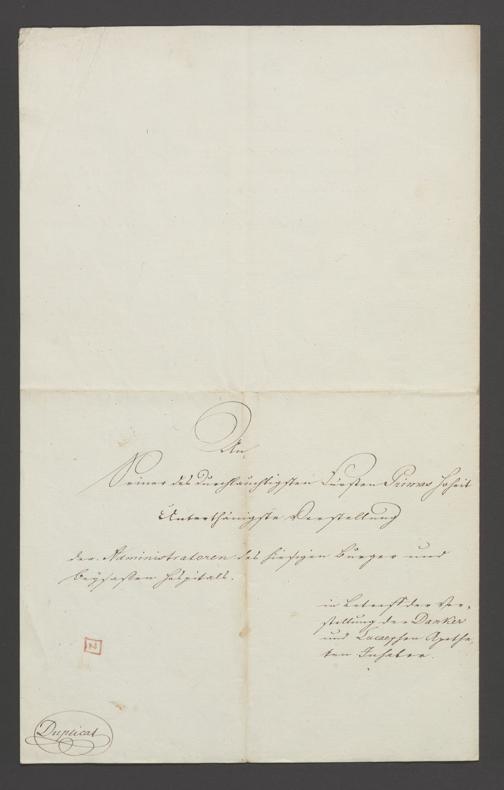 An
Seiner des durchlauchtigsten Fürsten Primas Hoheit
Unterthänigste Vorstellung
der Administratoren des hiesigen Bürger und
Beysassen Hospitals.
in Betreff der Vor-
stellung der
und Apothe-
ken Inhaber.
Duplicat